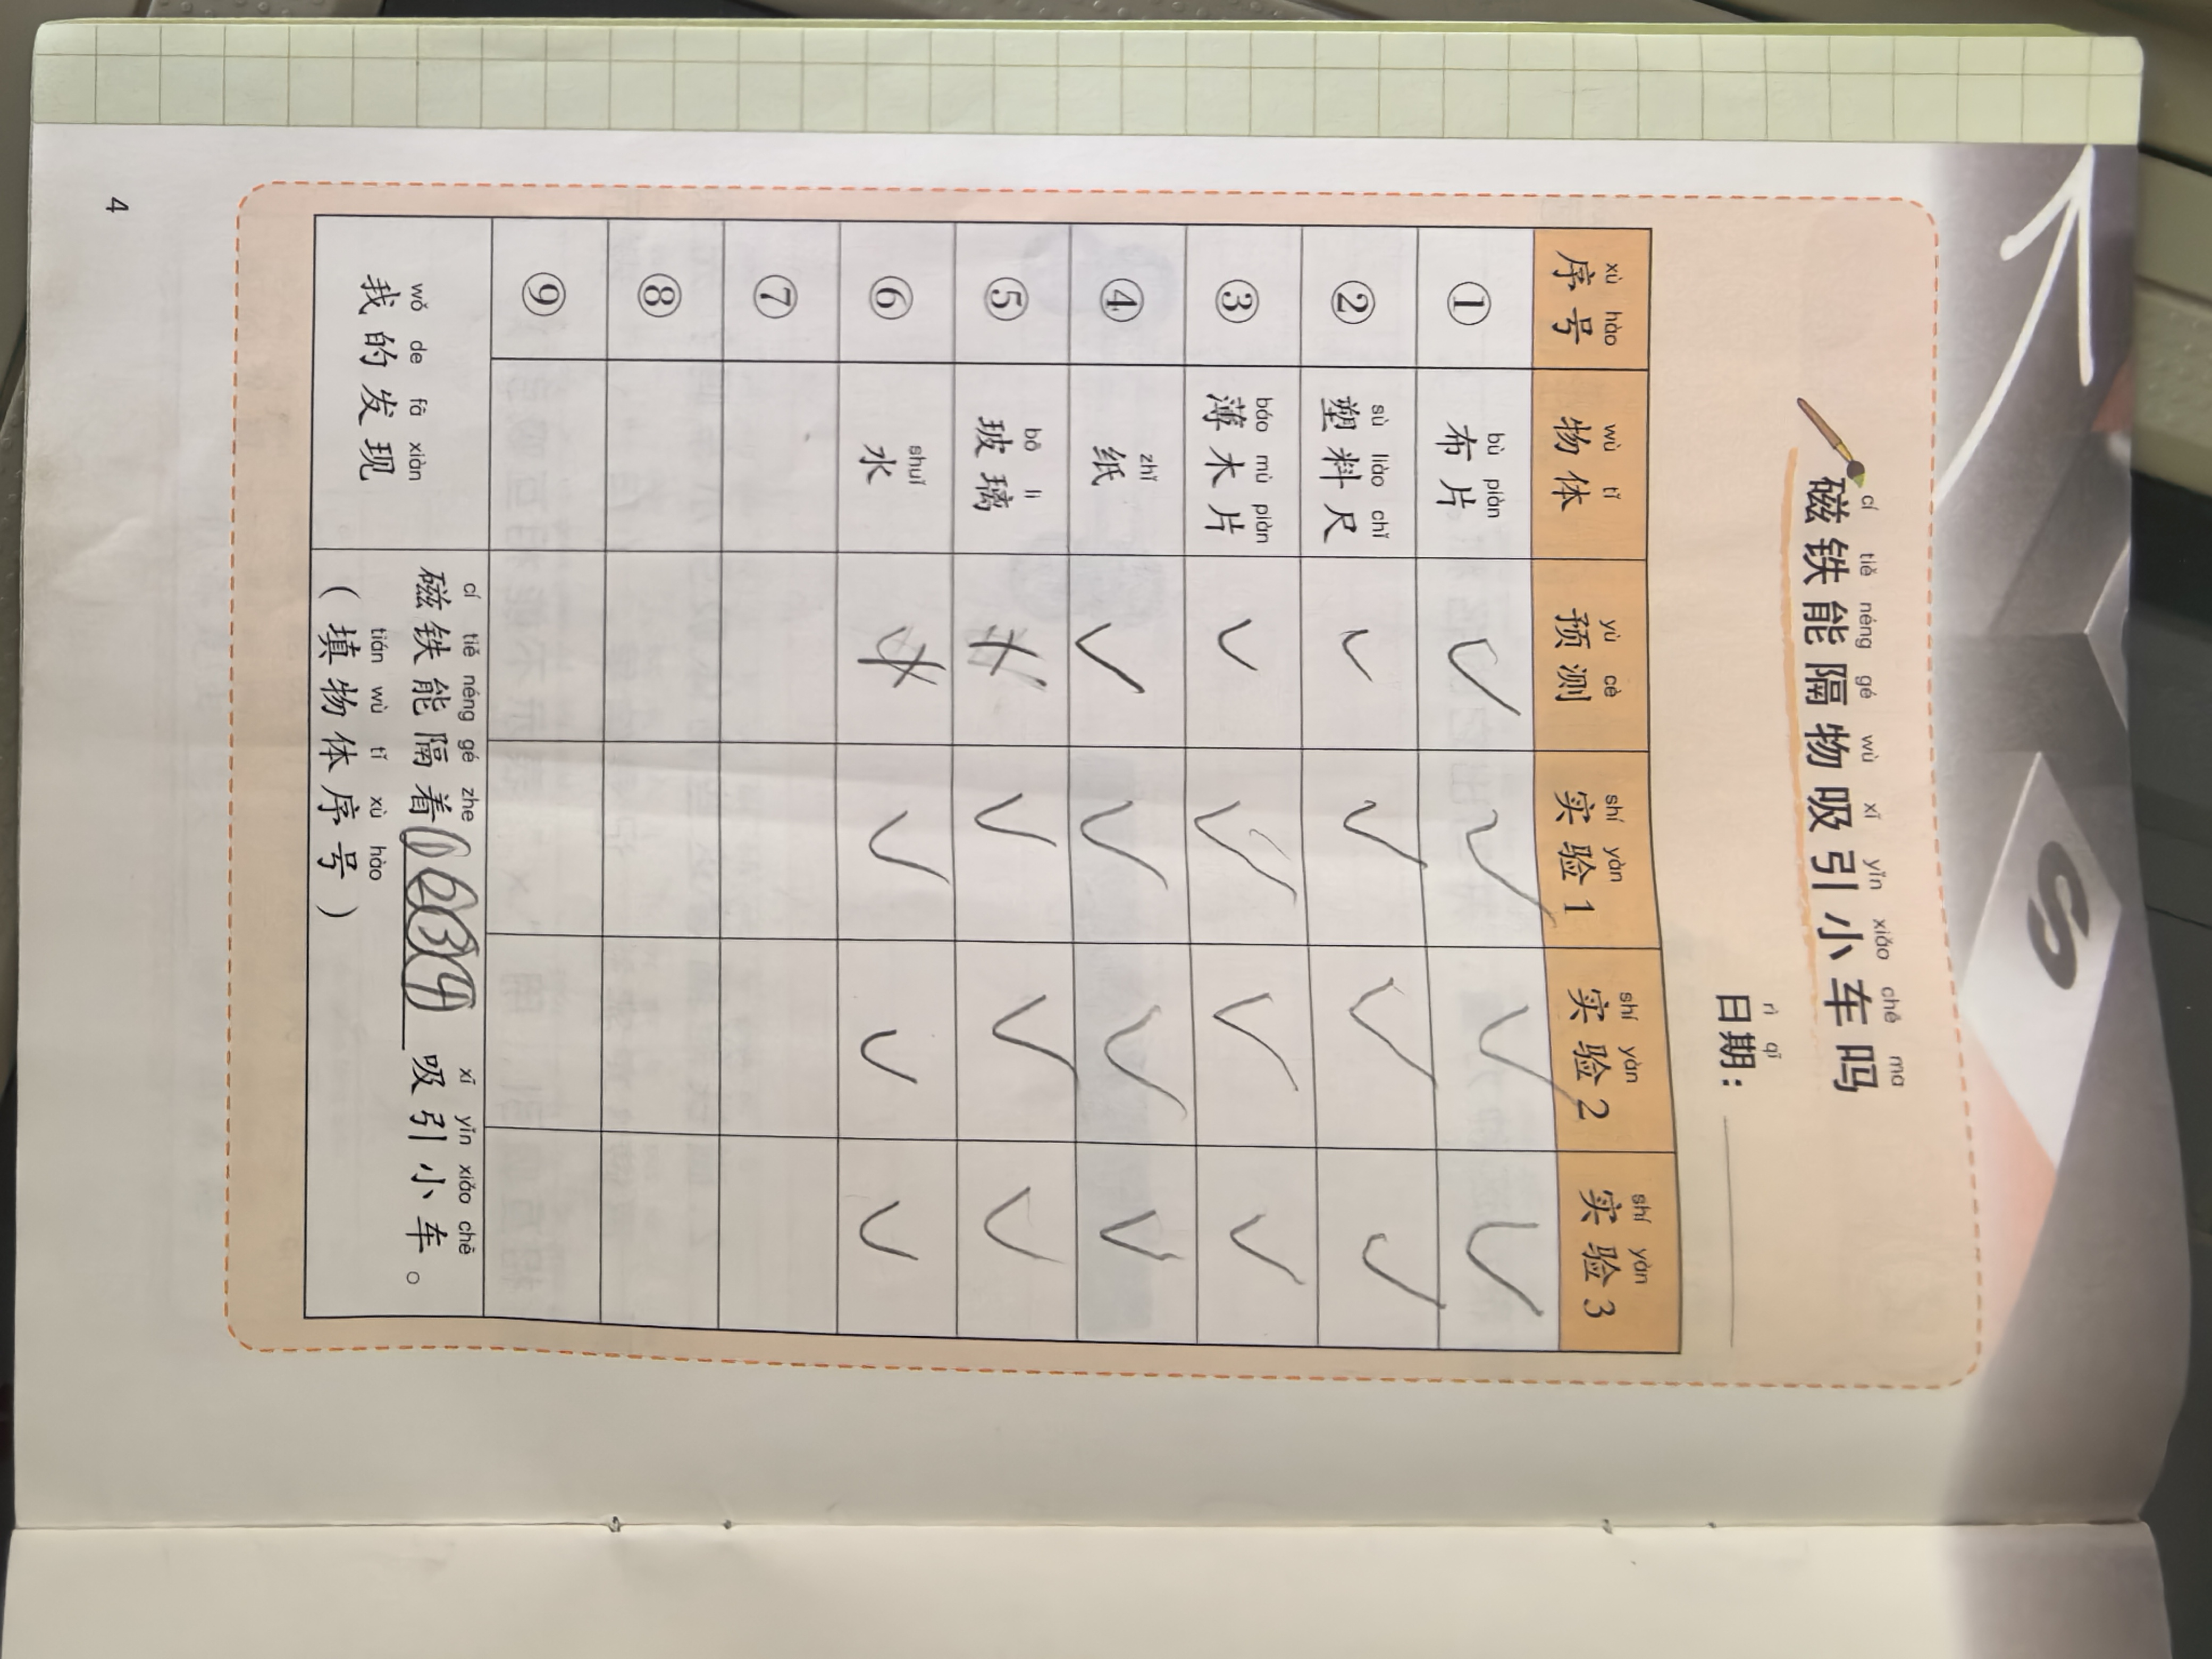 cí tiě néng gé wù xī yǐn xiǎo chē ma
磁铁能隔物吸引小车吗
rì qī
日期：
xù hào wù tǐ yù cè shí yàn shí yàn shí yàn
序号 物体 预测 实验1 实验2 实验3
bù piàn
① 布片 ✓ ✓ ✓ ✓
sù liào chǐ
② 塑料尺 ✓ ✓ ✓ ✓
báo mù piàn
③ 薄木片 ✓ ✓ ✓ ✓
zhǐ
④ 纸 ✓ ✓ ✓ ✓
bō li
⑤ 玻璃 ✓ ✓ ✓
shuǐ
⑥ 水 ✓ ✓ ✓
⑦
⑧
⑨
wǒ de fā xiàn
我的发现
cí tiě néng gé zhe xī yǐn xiǎo chē
磁铁能隔着①②③④吸引小车。
tián wù tǐ xù hào
（填物体序号）
4